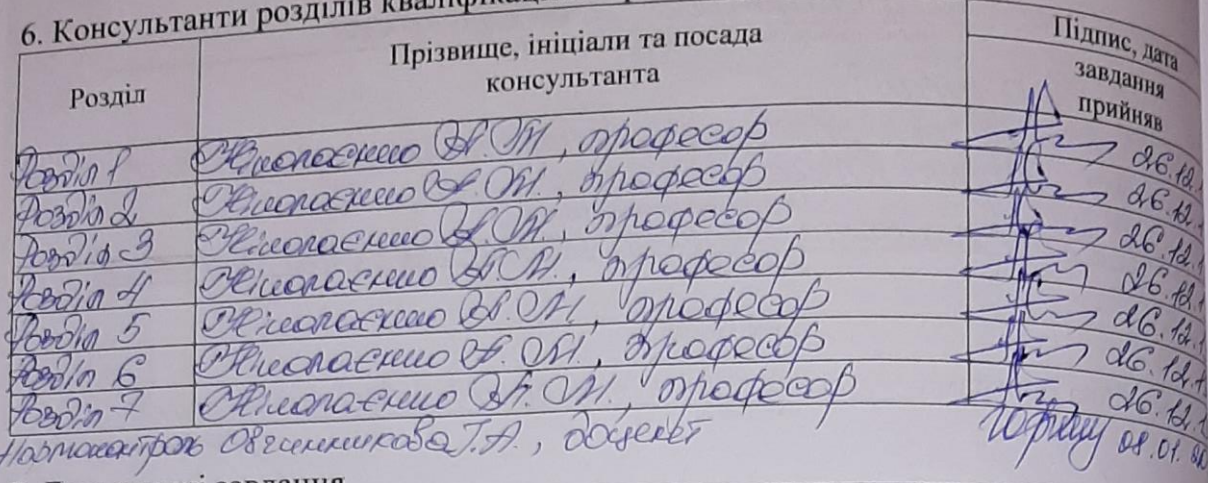 6. Консультанти розділів
Розділ
Прізвище, ініціали та посада
консультанта
Підпис, дата
завдання
прийняв
Розділ 1 Ніколаєнко професор 26.12.1
Розділ 2 Ніколаєнко професор 26.12.
Розділ 3 Ніколаєнко професор 26.12.1
Розділ 4 Ніколаєнко професор 26.12.
Розділ 5 Ніколаєнко професор 26.12.1
Розділ 6 Ніколаєнко професор 26.12.1
Розділ 7 Ніколаєнко професор 26.12.1
Нормоконтроль Овчинникова Т.А., доцент 08.01.
завдання